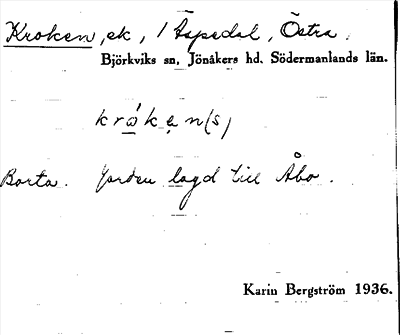 Kroken, ek, 1 Äspedal, Östra,
Björkviks sn, Jönåkers hd. Södermanlands län.
krǻkẹn(s)
Borta. Jorden lagd till Åbo.
Karin Bergström 1936.